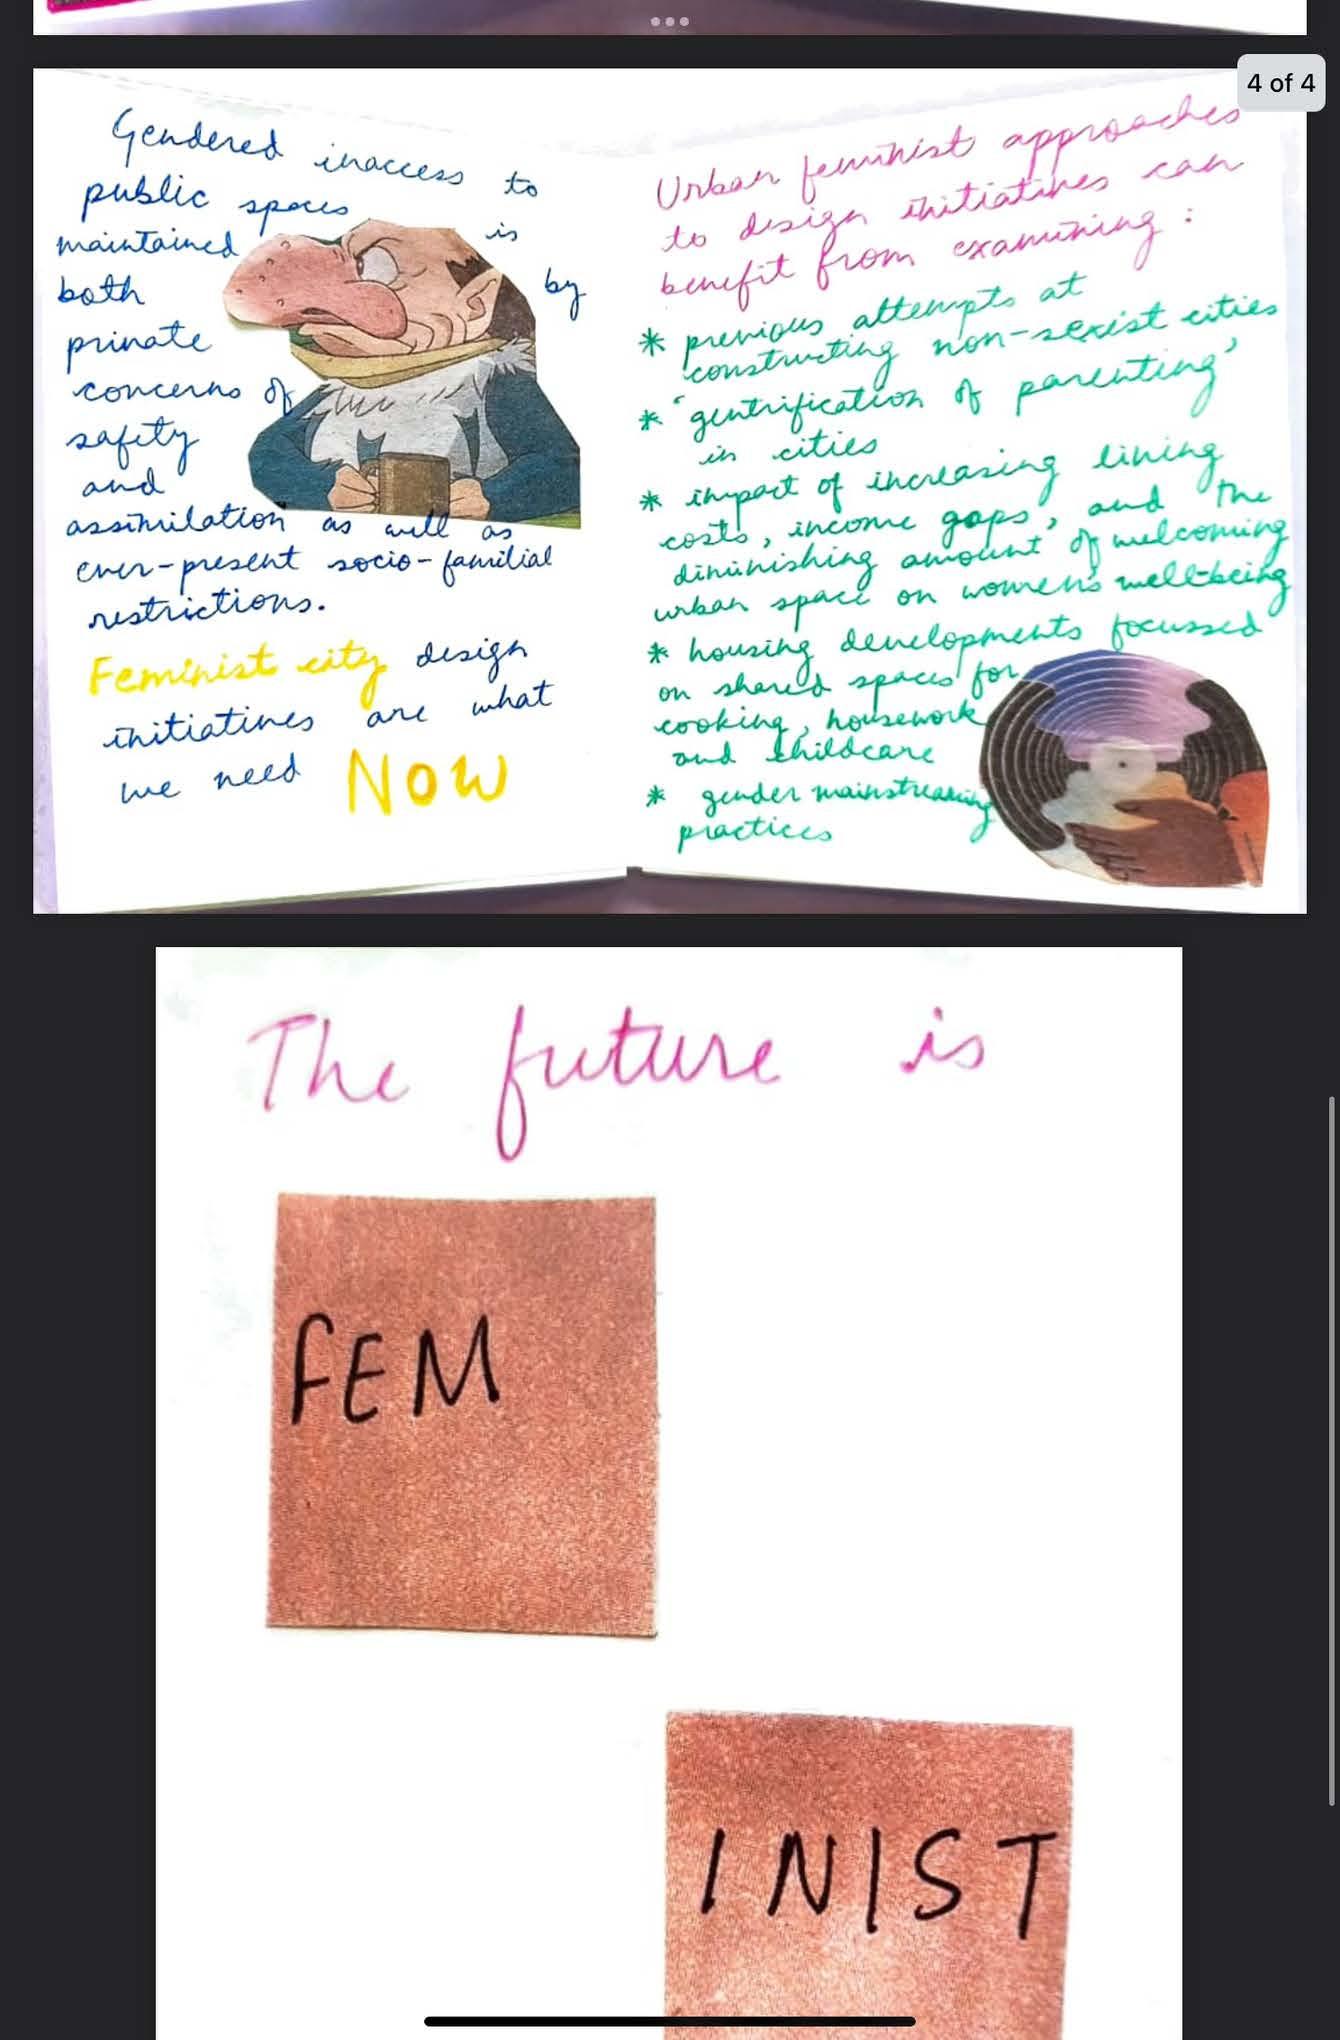 4 of 4
Gendered inaccess to
public spaces is
maintained by
both
private
concerns of
safety
and
assimilation as well as
ever-present socio-familial
restrictions.
Feminist city design
initiatives are what
we need NOW
Urban feminist approaches
to design initiatives can
benefit from examining:
* previous attempts at
constructing non-sexist cities
* 'gentrification of parenting'
in cities
* impact of increasing living
costs, income gaps, and the
diminishing amount of welcoming
urban space on women's well-being
* housing developments focussed
on shared spaces for
cooking, housework
and childcare
* gender mainstreaming
practices
The future is
FEM
INIST